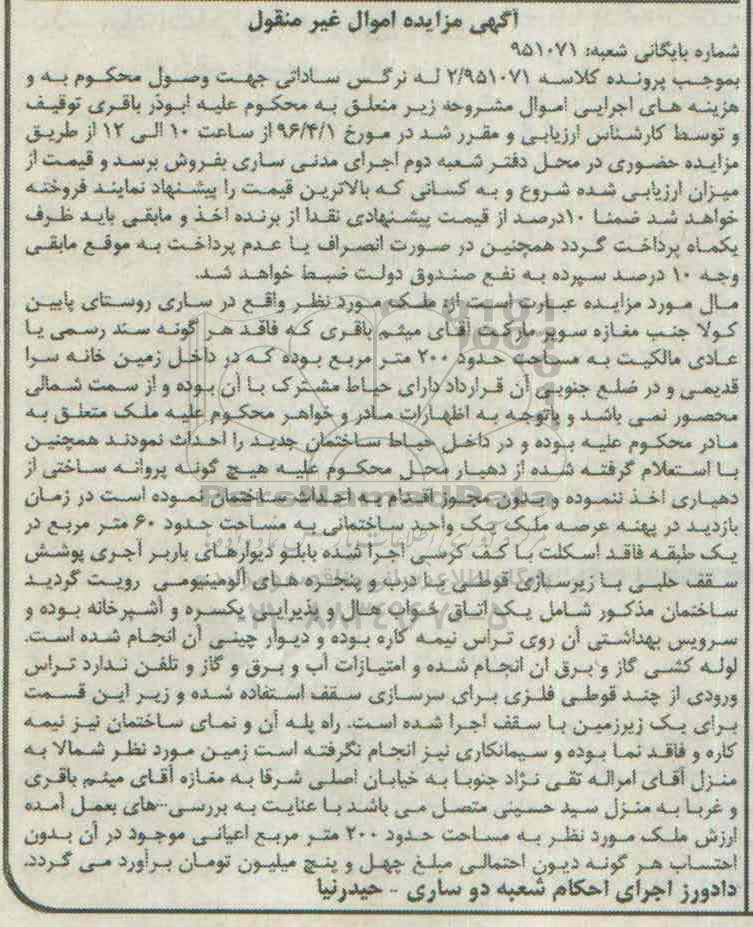 آگهی مزایده اموال غیر منقول
شماره بایگانی شعبه: ۹۵۱۰۷۱
بموجب پرونده کلاسه ۲/۹۵۱۰۷۱ له نرگس ساداتی جهت وصول محکوم به و
هزینه های اجرایی اموال مشروحه زیر متعلق به محکوم علیه ابوذر باقری توقیف
و توسط کارشناس ارزیابی و مقرر شد در مورخ ۹۶/۴/۱ از ساعت ۱۰ الی ۱۲ از طریق
مزایده حضوری در محل دفتر شعبه دوم اجرای مدنی ساری بفروش برسد و قیمت از
میزان ارزیابی شده شروع و به کسانی که بالاترین قیمت را پیشنهاد نمایند فروخته
خواهد شد ضمنا ۱۰درصد از قیمت پیشنهادی نقدا از برنده اخذ و مابقی باید ظرف
یکماه پرداخت گردد همچنین در صورت انصراف یا عدم پرداخت به موقع مابقی
وجه ۱۰ درصد سپرده به نفع صندوق دولت ضبط خواهد شد.
مال مورد مزایده عبارت است از: ملک مورد نظر واقع در ساری روستای پایین
کولا جنب مغازه سوپر مارکت آقای میثم باقری که فاقد هر گونه سند رسمی یا
عادی مالکیت به مساحت حدود ۲۰۰ متر مربع بوده که در داخل زمین خانه سرا
قدیمی و در ضلع جنوبی آن قرارداد دارای حیاط مشترک با آن بوده و از سمت شمالی
محصور نمی باشد و باتوجه به اظهارات مادر و خواهر محکوم علیه ملک متعلق به
مادر محکوم علیه بوده و در داخل حیاط ساختمان جدید را احداث نمودند همچنین
با استعلام گرفته شده از دهیار محل محکوم علیه هیچ گونه پروانه ساختی از
دهیاری اخذ ننموده و بدون مجوز اقدام به احداث ساختمان نموده است در زمان
بازدید در پهنه عرصه ملک یک واحد ساختمانی به مساحت حدود ۶۰ متر مربع در
یک طبقه فاقد اسکلت با کف کرسی اجرا شده بابلو دیوارهای باربر آجری پوشش
سقف حلبی با زیرسازی قوطی با درب و پنجره های آلومینیومی رویت گردید
ساختمان مذکور شامل یک اتاق خواب هال و پذیرایی یکسره و آشپرخانه بوده و
سرویس بهداشتی آن روی تراس نیمه کاره بوده و دیوار چینی آن انجام شده است.
لوله کشی گاز و برق ان انجام شده و امتیازات آب و برق و گاز و تلفن ندارد تراس
ورودی از چند قوطی فلزی برای سرسازی سقف استفاده شده و زیر این قسمت
برای یک زیرزمین با سقف اجرا شده است. راه پله آن و نمای ساختمان نیز نیمه
کاره و فاقد نما بوده و سیمانکاری نیز انجام نگرفته است زمین مورد نظر شمالا به
منزل آقای امراله تقی نژاد جنوبا به خیابان اصلی شرقا به مغازه آقای میثم باقری
و غربا به منزل سید حسینی متصل می باشد با عنایت به بررسی های بعمل آمده
ارزش ملک مورد نظر به مساحت حدود ۲۰۰ متر مربع اعیانی موجود در آن بدون
احتساب هر گونه دیون احتمالی مبلغ چهل و پنج میلیون تومان برآورد می گردد.
دادورز اجرای احکام شعبه دو ساری - حیدرنیا